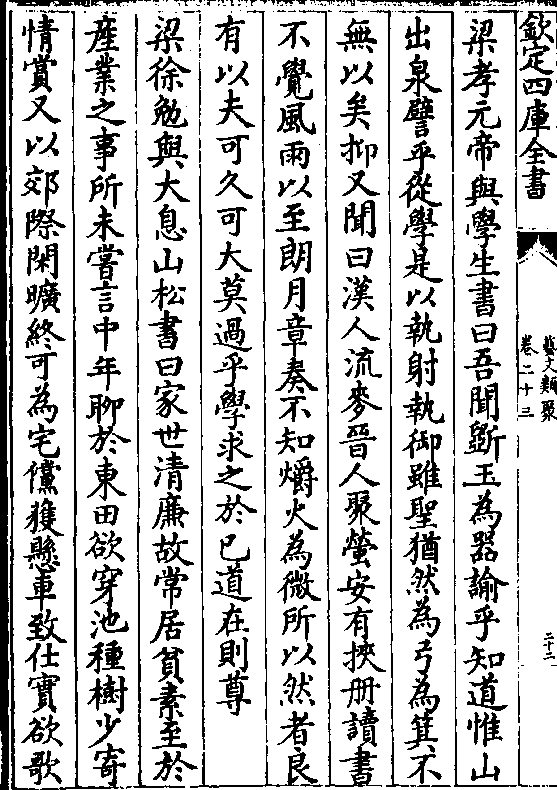 欽定四庫全書
藝文類聚
卷二十三
二十二
梁孝元帝與學生書曰吾聞斲玉為器諭乎知道惟山
出泉譬乎從學是以執射執御雖聖猶然為弓為箕不
無以矣抑又聞曰漢人流麥晉人聚螢安有挾册讀書
不覺風雨以至朗月章奏不知爝火為微所以然者良
有以夫可久可大莫過乎學求之於已道在則尊
梁徐勉與大息山松書曰家世清廉故常居貧素至於
產業之事所未嘗言中年聊於東田欲穿池種樹少寄
情賞又以郊際閑曠終可為宅儻獲懸車致仕實欲歌